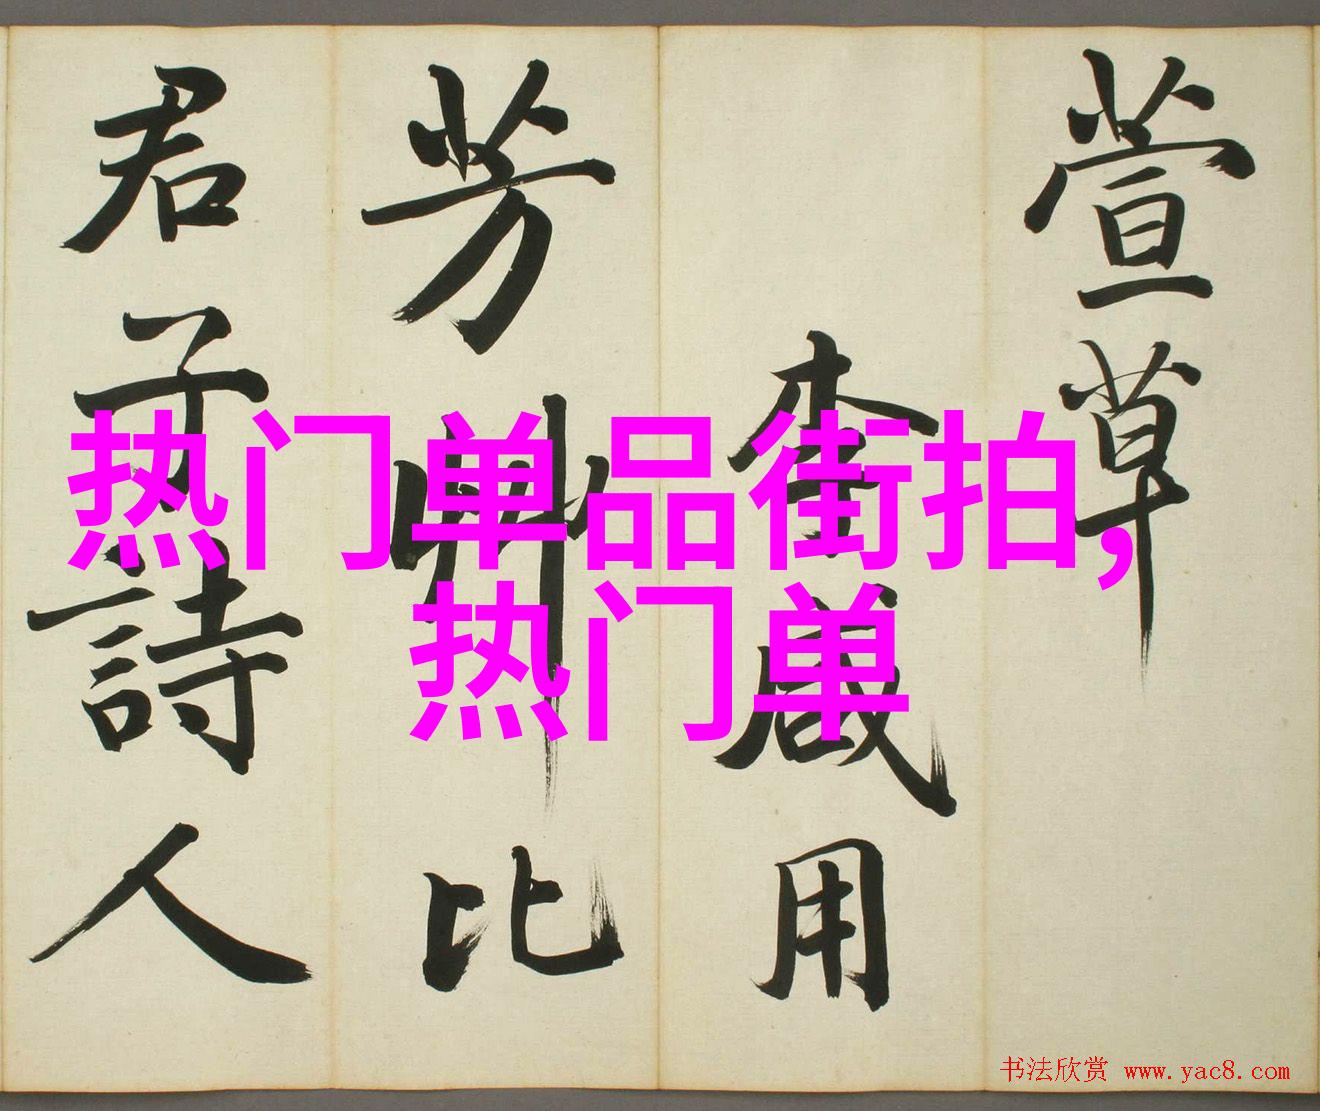 萱草
李咸用
芳艸比
君子詩人
热门单品街拍,
热门单
书法欣赏 www.yac8.com